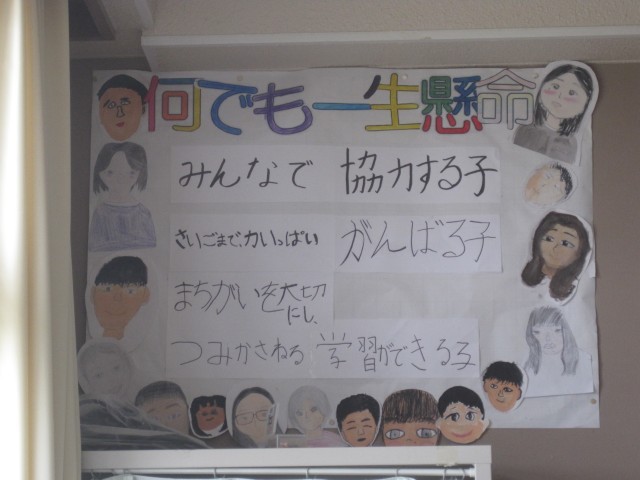 何でも一生懸命
みんなで 協力する子
さいごまで、力いっぱい がんばる子
まちがいを大切にし、
つみかさねる 学習ができる子